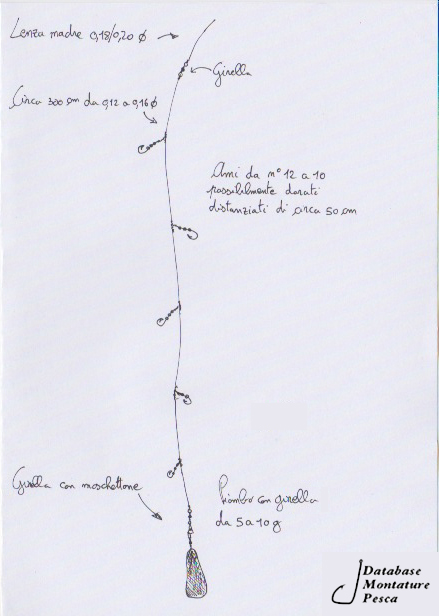 Lenza madre 0,18/0,20 ø
Girella
Circa 300 cm da 0,12 a 0,16 ø
Ami da n° 12 a 10
possibilmente dorati
distanziati di circa 50 cm
Girella con moschettone
Piombo con girella
da 5 a 10 g
Database
Montature
Pesca